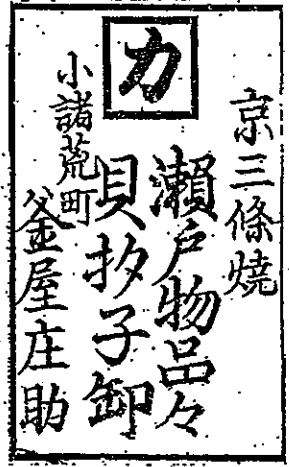 カ
京三條燒
瀬戸物品々
貝抄子卸
小諸荒町
釜屋庄助